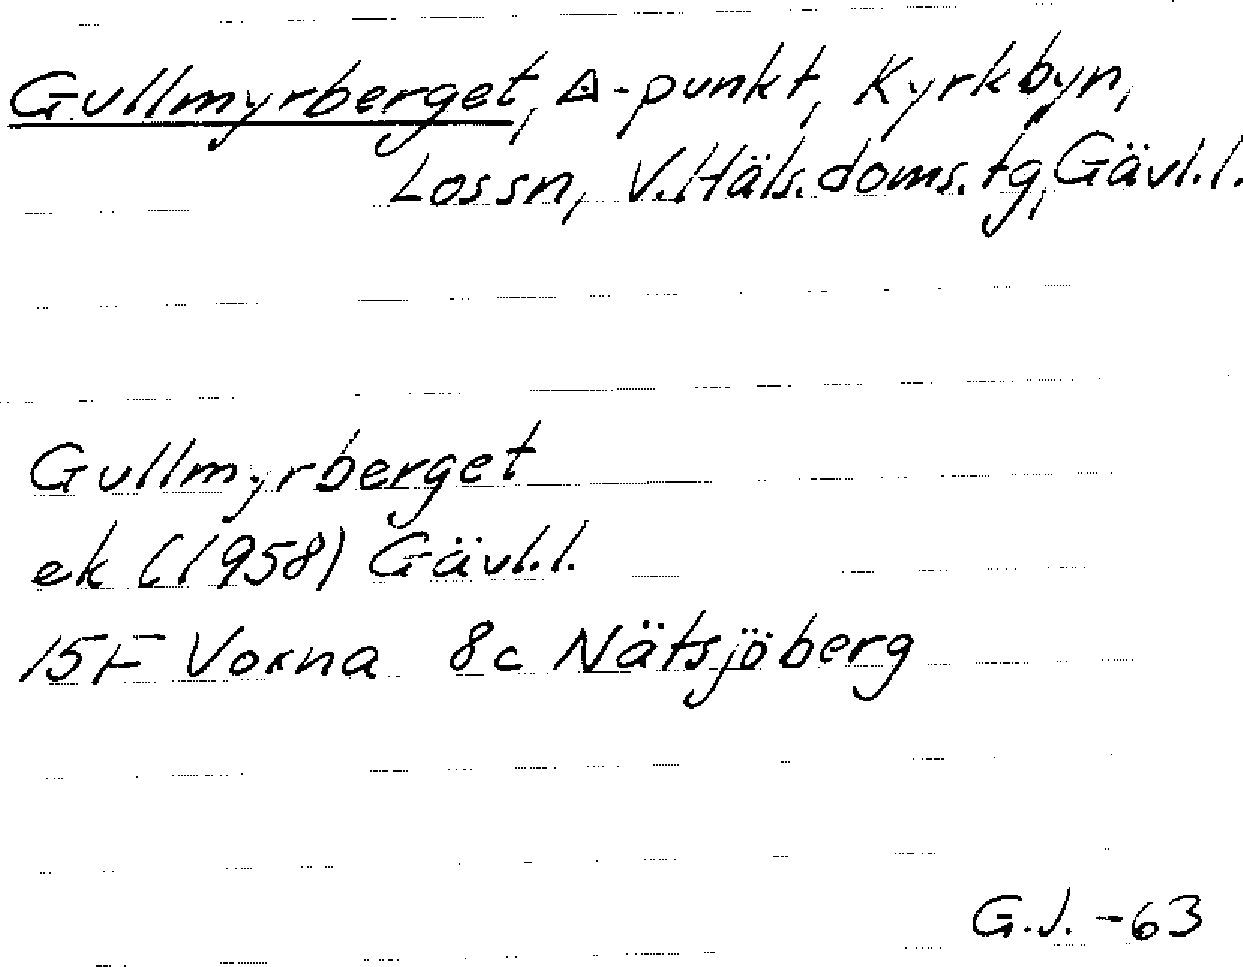 Gullmyrberget, ◬-punkt, Kyrkbyn,
Lossn, V.Häls.doms.tg, Gävl.l.
Gullmyrberget
ek (1958) Gävl.l.
15F Voxna 8c Nätsjöberg
G.J. -63